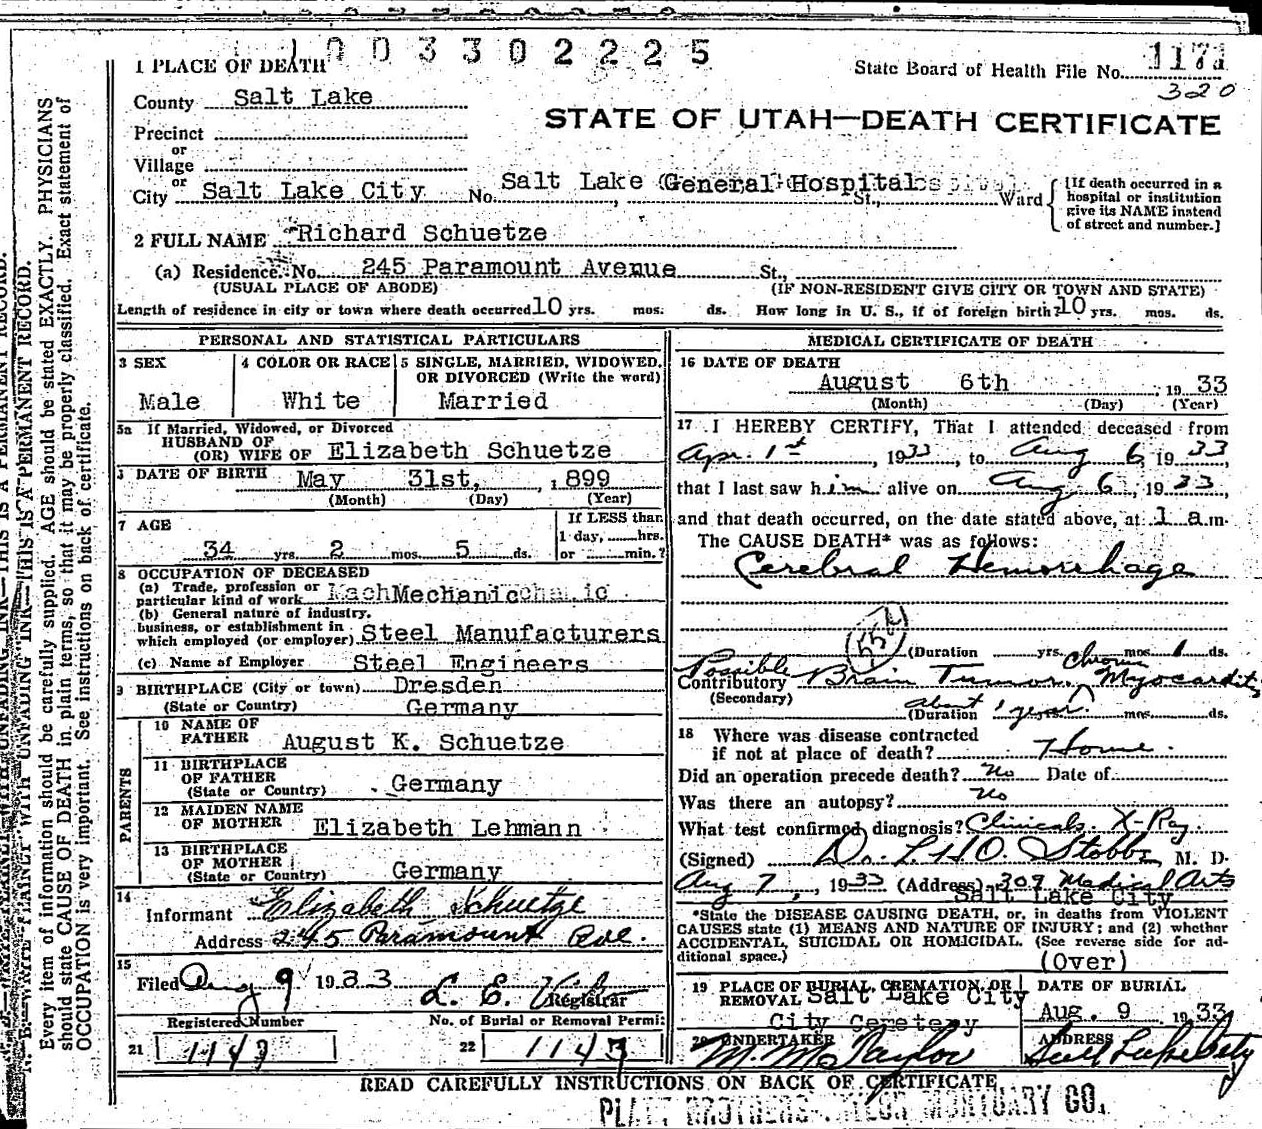 1003302225
1 PLACE OF DEATH
State Board of Health File No. 1171
320
County Salt Lake
STATE OF UTAH—DEATH CERTIFICATE
Precinct
or
Village
or
City Salt Lake City No. Salt Lake General Hospital St., Ward
[If death occurred in a hospital or institution give its NAME instead of street and number.]
2 FULL NAME Richard Schuetze
(a) Residence. No. 245 Paramount Avenue St.,
(USUAL PLACE OF ABODE) (IF NON-RESIDENT GIVE CITY OR TOWN AND STATE)
Length of residence in city or town where death occurred 10 yrs. mos. ds. How long in U. S., if of foreign birth? 10 yrs. mos. ds.
PERSONAL AND STATISTICAL PARTICULARS
3 SEX
Male
4 COLOR OR RACE
White
5 SINGLE, MARRIED, WIDOWED, OR DIVORCED (Write the word)
Married
5a If Married, Widowed, or Divorced
HUSBAND OF
(OR) WIFE OF Elizabeth Schuetze
DATE OF BIRTH May 31st, 1899
(Month) (Day) (Year)
7 AGE
34 yrs. 2 mos. 5 ds.
If LESS than
1 day, hrs.
or min.?
8 OCCUPATION OF DECEASED
(a) Trade, profession or
particular kind of work Mechanic
(b) General nature of industry,
business, or establishment in
which employed (or employer) Steel Manufacturers
(c) Name of Employer Steel Engineers
9 BIRTHPLACE (City or town) Dresden
(State or Country) Germany
PARENTS
10 NAME OF
FATHER August K. Schuetze
11 BIRTHPLACE
OF FATHER
(State or Country) Germany
12 MAIDEN NAME
OF MOTHER Elizabeth Lehmann
13 BIRTHPLACE
OF MOTHER
(State or Country) Germany
14
Informant Elizabeth Schuetze
Address 245 Paramount Ave.
15
Filed Aug 9 1933 L. E.
Registrar
Registered Number No. of Burial or Removal Permit
21 1143 22 1143
MEDICAL CERTIFICATE OF DEATH
16 DATE OF DEATH
August 6th, 1933
(Month) (Day) (Year)
17 I HEREBY CERTIFY, That I attended deceased from
Apr. 1st, 1933, to Aug 6, 1933,
that I last saw him alive on Aug 6, 1933,
and that death occurred, on the date stated above, at 1 a m.
The CAUSE DEATH* was as follows:
Cerebral Hemorrhage
(Duration yrs. mos. 1 ds.
Possible chronic
Contributory Brain Tumor. Myocarditis
(Secondary)
(Duration about 1 year? mos. ds.
18 Where was disease contracted
if not at place of death? Home.
Did an operation precede death? no Date of
Was there an autopsy? no
What test confirmed diagnosis? Clinicals. X-Ray
(Signed) Dr. L. H. O. Stobbe, M. D.
Aug 7, 1933 (Address) 309 Medical Arts
Salt Lake City
*State the DISEASE CAUSING DEATH, or, in deaths from VIOLENT
CAUSES state (1) MEANS AND NATURE OF INJURY; and (2) whether
ACCIDENTAL, SUICIDAL OR HOMICIDAL. (See reverse side for ad-
ditional space.) (Over)
19 PLACE OF BURIAL, CREMATION, OR
REMOVAL Salt Lake City
City Cemetery
DATE OF BURIAL
Aug. 9 1933
20 UNDERTAKER
M. McTaylor
ADDRESS
Salt Lake City
READ CAREFULLY INSTRUCTIONS ON BACK OF CERTIFICATE
MORTUARY CO.
THIS IS A PERMANENT RECORD.
Every item of information should be carefully supplied. AGE should be stated EXACTLY. PHYSICIANS
should state CAUSE OF DEATH in plain terms, so that it may be properly classified. Exact statement of
OCCUPATION is very important. See instructions on back of certificate.